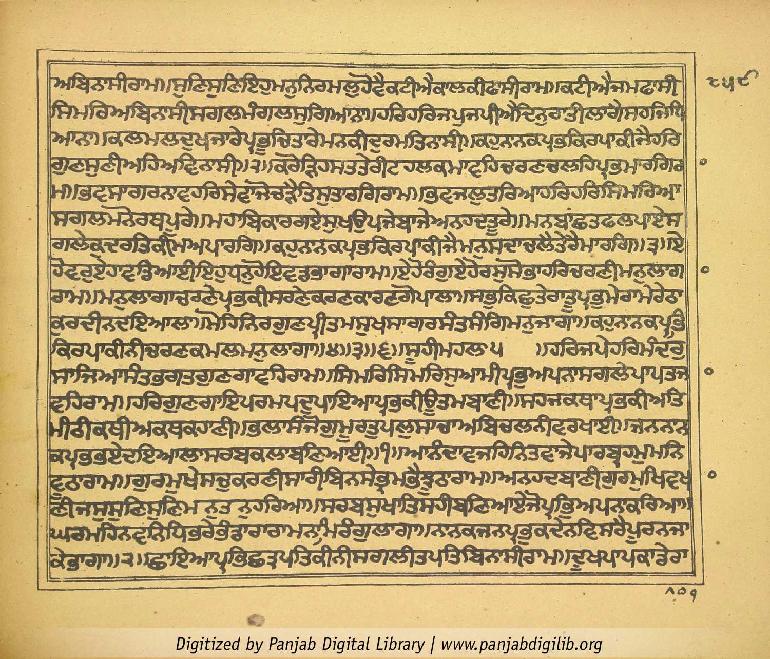 ਅਬਿਨਾਸੀਰਾਮ॥ਸੁਣਿਸੁਣਿਇਹੁਮਨੁਨਿਰਮਲੁਹੋਵੈਕਟੀਐਕਾਲਕੀਫਾਸੀਰਾਮ॥ਕਟੀਐਜਮਫਾਸੀ
ਸਿਮਰਿਅਬਿਨਾਸੀਸਗਲਮੰਗਲਸੁਗਿਆਨਾ॥ਹਰਿਹਰਿਜਪੁਜਪੀਐਦਿਨੁਰਾਤੀਲਾਗੈਸਹਜਿਧਿ
ਆਨਾ॥ਕਲਮਲਦੁਖਜਾਰੇਪ੍ਰਭੂਚਿਤਾਰੇਮਨਕੀਦੁਰਮਤਿਨਾਸੀ॥ਕਹੁਨਾਨਕਪ੍ਰਭਕਿਰਪਾਕੀਜੈਹਰਿ
ਗੁਣਸੁਣੀਅਹਿਅਵਿਨਾਸੀ॥੨॥ਕਰੋੜਿਹਸਤਤੇਰੀਟਹਲਕਮਾਵਹਿਚਰਣਚਲਹਿਪ੍ਰਭਮਾਰਗਿਰਾ
ਮ॥ਭਵਸਾਗਰਨਾਵਹਰਿਸੇਵਾਜੋਚੜੈਤਿਸੁਤਾਰਗਿਰਾਮ॥ਭਵਜਲੁਤਰਿਆਹਰਿਹਰਿਸਿਮਰਿਆ
ਸਗਲਮਨੋਰਥਪੂਰੇ॥ਮਹਾਬਿਕਾਰਗਏਸੁਖਉਪਜੇਬਾਜੇਅਨਹਦਤੂਰੇ॥ਮਨਬਾਂਛਤਫਲਪਾਏਸ
ਗਲੇਕੁਦਰਤਿਕੀਮਅਪਾਰਗਿ॥ਕਹੁਨਾਨਕਪ੍ਰਭਕਿਰਪਾਕੀਜੈਮਨੁਸਦਾਚਲੈਤੇਰੈਮਾਰਗਿ॥੩॥ਏ
ਹੋਵਰੁਏਹਾਵਡਿਆਈਇਹੁਧਨੁਹੋਇਵਡਭਾਗਾਰਾਮ॥ਏਹੋਰੰਗੁਏਹੋਰਸਭੋਗਾਹਰਿਚਰਣੀਮਨੁਲਾਗਾ
ਰਾਮ॥ਮਨੁਲਾਗਾਚਰਣੇਪ੍ਰਭਕੀਸਰਣੇਕਰਣਕਾਰਣਗੋਪਾਲਾ॥ਸਭੁਕਿਛੁਤੇਰਾਤੂਪ੍ਰਭੁਮੇਰਾਮੇਰੇਠਾ
ਕੁਰਦੀਨਦਇਆਲਾ॥ਮੋਹਿਨਿਰਗੁਣਪ੍ਰੀਤਮਸੁਖਸਾਗਰਸੰਤਸੰਗਿਮਨੁਜਾਗਾ॥ਕਹੁਨਾਨਕਪ੍ਰਭਿ
ਕਿਰਪਾਕੀਨੀਚਰਣਕਮਲਮਨੁਲਾਗਾ॥੪॥੩॥੬॥ਸੂਹੀਮਹਲਾ੫ ॥ਹਰਿਜਪੇਹਰਿਮੰਦਰੁ
ਸਾਜਿਆਸੰਤਭਗਤਗੁਣਗਾਵਹਿਰਾਮ॥ਸਿਮਰਿਸਿਮਰਿਸੁਆਮੀਪ੍ਰਭੁਅਪਨਾਸਗਲੇਪਾਪਤਜਾ
ਵਹਿਰਾਮ॥ਹਰਿਗੁਣਗਾਇਪਰਮਪਦੁਪਾਇਆਪ੍ਰਭਕੀਊਤਮਬਾਣੀ॥ਸਹਜਕਥਾਪ੍ਰਭਕੀਅਤਿ
ਮੀਠੀਕਥੀਅਕਥਕਹਾਣੀ॥ਭਲਾਸੰਜੋਗੁਮੂਰਤੁਪਲੁਸਾਚਾਅਬਿਚਲਨੀਵਰਖਾਈ॥ਜਨਨਾਨ
ਕਪ੍ਰਭਭਏਦਇਆਲਾਸਰਬਕਲਾਬਣਿਆਈ॥੧॥ਆਨੰਦਾਵਜਹਿਨਿਤਵਾਜੇਪਾਰਬ੍ਰਹਮੁਮਨਿ
ਵੂਠਾਰਾਮ॥ਗੁਰਮੁਖੇਸਚੁਕਰਣੀਸਾਰੀਬਿਨਸੇਭ੍ਰਮਭੈਝੂਠਾਰਾਮ॥ਅਨਹਦਬਾਣੀਗੁਰਮੁਖਿਵਖਾ
ਣੀਜਸੁਸੁਣਿਸੁਣਿਮਨੁਤਨੁਹਰਿਆ॥ਸਰਬਸੁਖਾਤਿਸਹੀਬਣਿਆਏਜੋਪ੍ਰਭਿਅਪਨਾਕਰਿਆ॥
ਘਰਮਹਿਨਵਨਿਧਿਭਰੇਭੰਡਾਰਾਰਾਮਨਾਮਿਰੰਗੁਲਾਗਾ॥ਨਾਨਕਜਨਪ੍ਰਭੁਕਦੇਨਵਿਸਰੈਪੂਰਨਜਾ
ਕੇਭਾਗਾ॥੨॥ਛਾਇਆਪ੍ਰਭਿਛਤ੍ਰਪਤਿਕੀਨੀਸਗਲੀਤਪਤਿਬਿਨਾਸੀਰਾਮ॥ਦੂਖਪਾਪਕਾਡੇਰਾ
Digitized by Panjab Digital Library | www.panjabdigilib.org